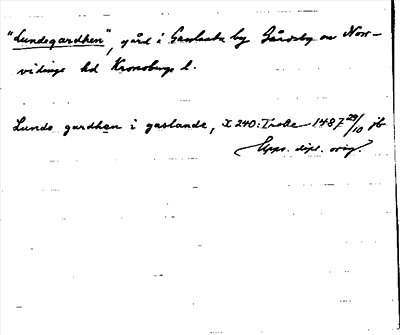 "Lundsgardhen", gård i Gasslanda by Gårdsby sn Norr-
vidinge hd Kronobergs l.
Lunds gardhen i gaslande, X 240: Trolle 1487 29/10 jb
Upps. dipl. orig.